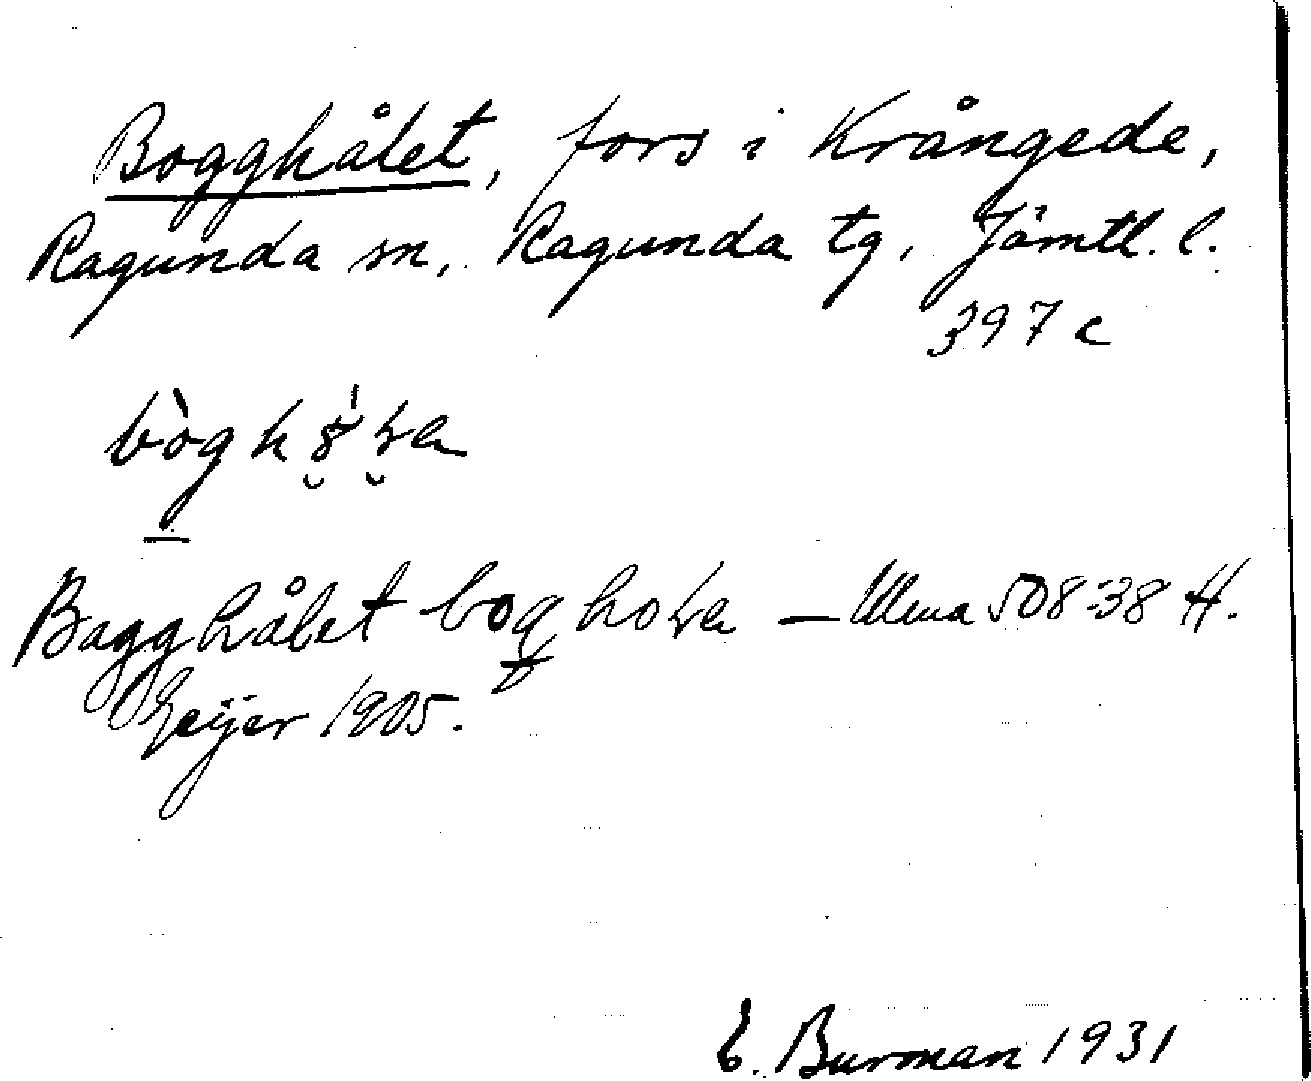 Bogghålet, fors i Krångede,
Ragunda sn, Ragunda tg, Jämtl. l.
397 c
Bagghålet — Ulma 508:38 H.
Geijer 1905.
E. Burman 1931